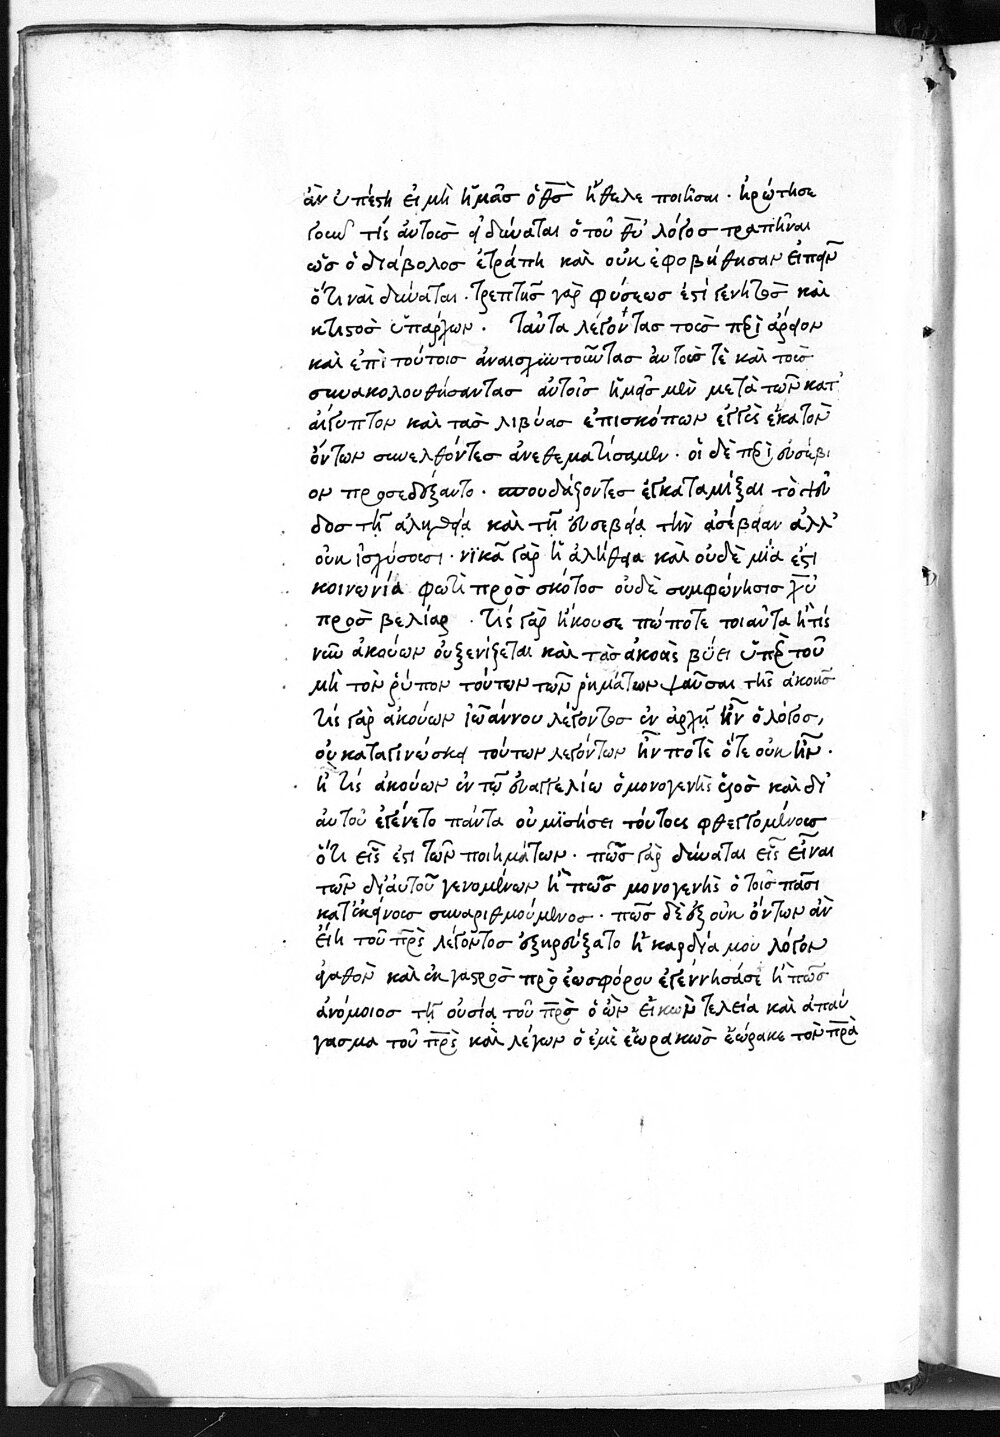 ἂν ὑπέστη εἰ μὴ ἡμᾶσ ὁ θσ̅ ἤθελε ποιῆσαι · ἠρώτησε
γοῦν τίς αὐτοὺσ εἰ δύναται ὁ τοῦ θυ̅ λόγοσ τραπῆναι
ὡσ ὁ διάβολοσ ἐτράπη καὶ οὐκ ἐφοβήθησαν εἰπεῖν
ὅτι ναὶ δύναται · τρεπτῆσ γὰρ φύσεωσ ἐστὶ γενητὸσ καὶ
κτιστὸσ ὑπάρχων · ταῦτα λέγοντασ τοὺσ περὶ ἄρειον
καὶ ἐπὶ τούτοισ ἀναισχυντοῦντασ αὐτοὺσ τὲ καὶ τοὺσ
συνακολουθήσαντασ αὐτοῖσ ἡμεῖσ μὲν μετὰ τῶν κατ'
αἴγυπτον καὶ τὰσ λιβύασ ἐπισκόπων ἐγγὺς ἑκατὸν
ὄντων συνελθόντεσ ἀνεθεματίσαμεν · οἱ δὲ περὶ εὐσέβι
ον προσεδέξαντο · σπουδάζοντεσ ἐγκαταμίξαι τὸ ψεῦ
δοσ τῇ ἀληθείᾳ καὶ τῇ εὐσεβείᾳ τὴν ἀσέβειαν ἀλλ'
οὐκ ἰσχύσουσι · νικᾶ γὰρ ἡ ἀλήθεια καὶ οὐδὲ μία ἐστι
κοινωνία φωτὶ πρὸσ σκότοσ οὐδὲ συμφώνησισ χυ̅
πρὸσ βελίαρ · τίς γὰρ ἤκουσε πώποτε τοιαῦτα ἢ τίς
νῦν ἀκούων οὐ ξενίζεται καὶ τὰσ ἀκοὰς βύει ὑπὲρ τοῦ
μὴ τὸν ῥύπον τούτων τῶν ῥημάτων ψαῦσαι τῆς ἀκοῆσ
τίς γὰρ ἀκούων ἰωάννου λέγοντοσ ἐν ἀρχῇ ἦν ὁ λόγοσ,
οὐ καταγινώσκει τούτων λεγόντων ἦν ποτὲ ὅτε οὐκ ἦν ·
ἢ τίς ἀκούων ἐν τῷ εὐαγγελίω ὁ μονογενὴς υἱὸσ καὶ δι'
αὐτοῦ ἐγένετο πάντα οὐ μισήσει τούτους φθεγγομένουσ
ὅτι εἷς ἐστι τῶν ποιημάτων · πῶσ γὰρ δύναται εἷς εἶναι
τῶν δι' αὐτοῦ γενομένων ἢ πῶσ μονογενὴς ὁ τοῖσ πᾶσι
κατ' ἐκείνουσ συναριθμούμενοσ · πῶσ δὲ ἐξ οὐκ ὄντων ἂν
εἴη τοῦ πρ̅ς λέγοντοσ ἐξηρεύξατο ἡ καρδία μου λόγον
ἀγαθὸν καὶ ἐκ γαστρὸσ πρὸ ἑωσφόρου ἐγέννησά σε ἢ πῶσ
ἀνόμοιοσ τῇ οὐσία τοῦ πρ̅σ ὁ ὢν εἰκὼν τελεία καὶ ἀπαύ
γασμα τοῦ πρ̅ς καὶ λέγων ὁ ἐμὲ ἑωρακὼσ ἑώρακε τὸν πρ̅α